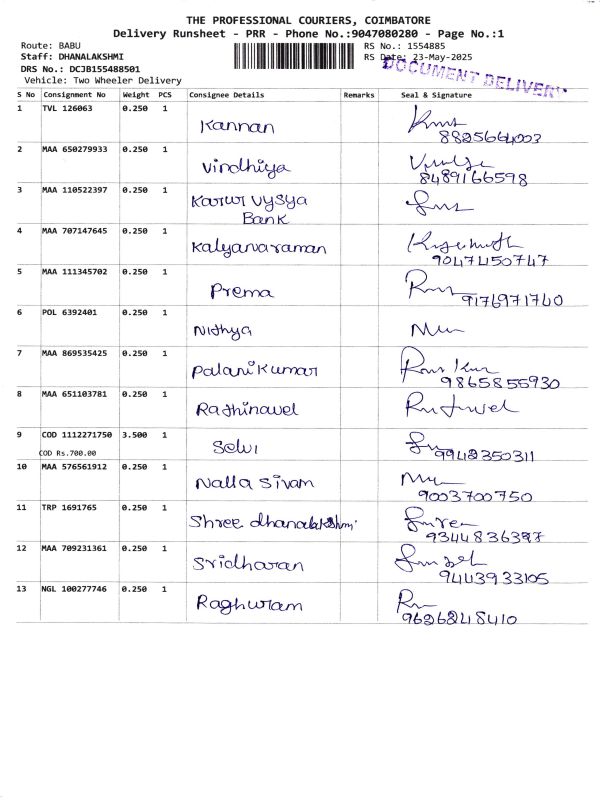 THE PROFESSIONAL COURIERS, COIMBATORE
Delivery Runsheet - PRR - Phone No.:9047080280 - Page No.:1
Route: BABU
Staff: DHANALAKSHMI
DRS No.: DCJB155488501
Vehicle: Two Wheeler Delivery
RS No.: 1554885
RS Date: 23-May-2025
DOCUMENT DELIVERY
S No Consignment No Weight PCS Consignee Details Remarks Seal & Signature
1 TVL 126063 0.250 1 Kannan
8825664003
2 MAA 650279933 0.250 1 Vindhiya
8489166598
3 MAA 110522397 0.250 1 Karur Vysya
Bank
4 MAA 707147645 0.250 1 Kalyanaraman
9047450747
5 MAA 111345702 0.250 1 Prema
9176971740
6 POL 6392401 0.250 1 Nithya
7 MAA 869535425 0.250 1 Palanikumar
9865855930
8 MAA 651103781 0.250 1 Rathinavel
9 COD 1112271750 3.500 1 Selvi
COD Rs.700.00
9942350311
10 MAA 576561912 0.250 1 Nalla Sivam
9003700750
11 TRP 1691765 0.250 1 Shree dhanalakshmi
9344836397
12 MAA 709231361 0.250 1 Sridharan
9443933105
13 NGL 100277746 0.250 1 Raghuram
9626248410